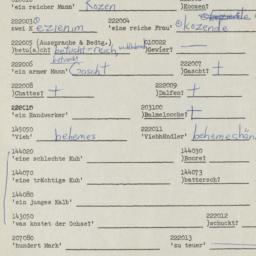 'ein reicher Mann' Kozen )Kozen?
222003 222004 kozende
zwei X ezienim 'eine reiche Frau' kozende
222005 (Aussprache & Bedtg.) 010022
)betu(a)cht betucht = reich, )Gewier? —
222006 222007
'ein armer Mann' Dasch† )Gascht? †
222008 222009
)Chattes? † )Dalfen? †
222010 203100
'ein Handwerker' )Balmelooche? †
145050 222011
'Vieh' behemes 'Viehhändler'
144020 144030
'eine schlechte Kuh' )Boore?
144070 144073
'eine trächtige Kuh' )battersch?
144080
'ein junges Kalb'
143050 222012
'was kostet der Ochse?' )schuckt?
207080 222013
'hundert Mark' 'zu teuer' —